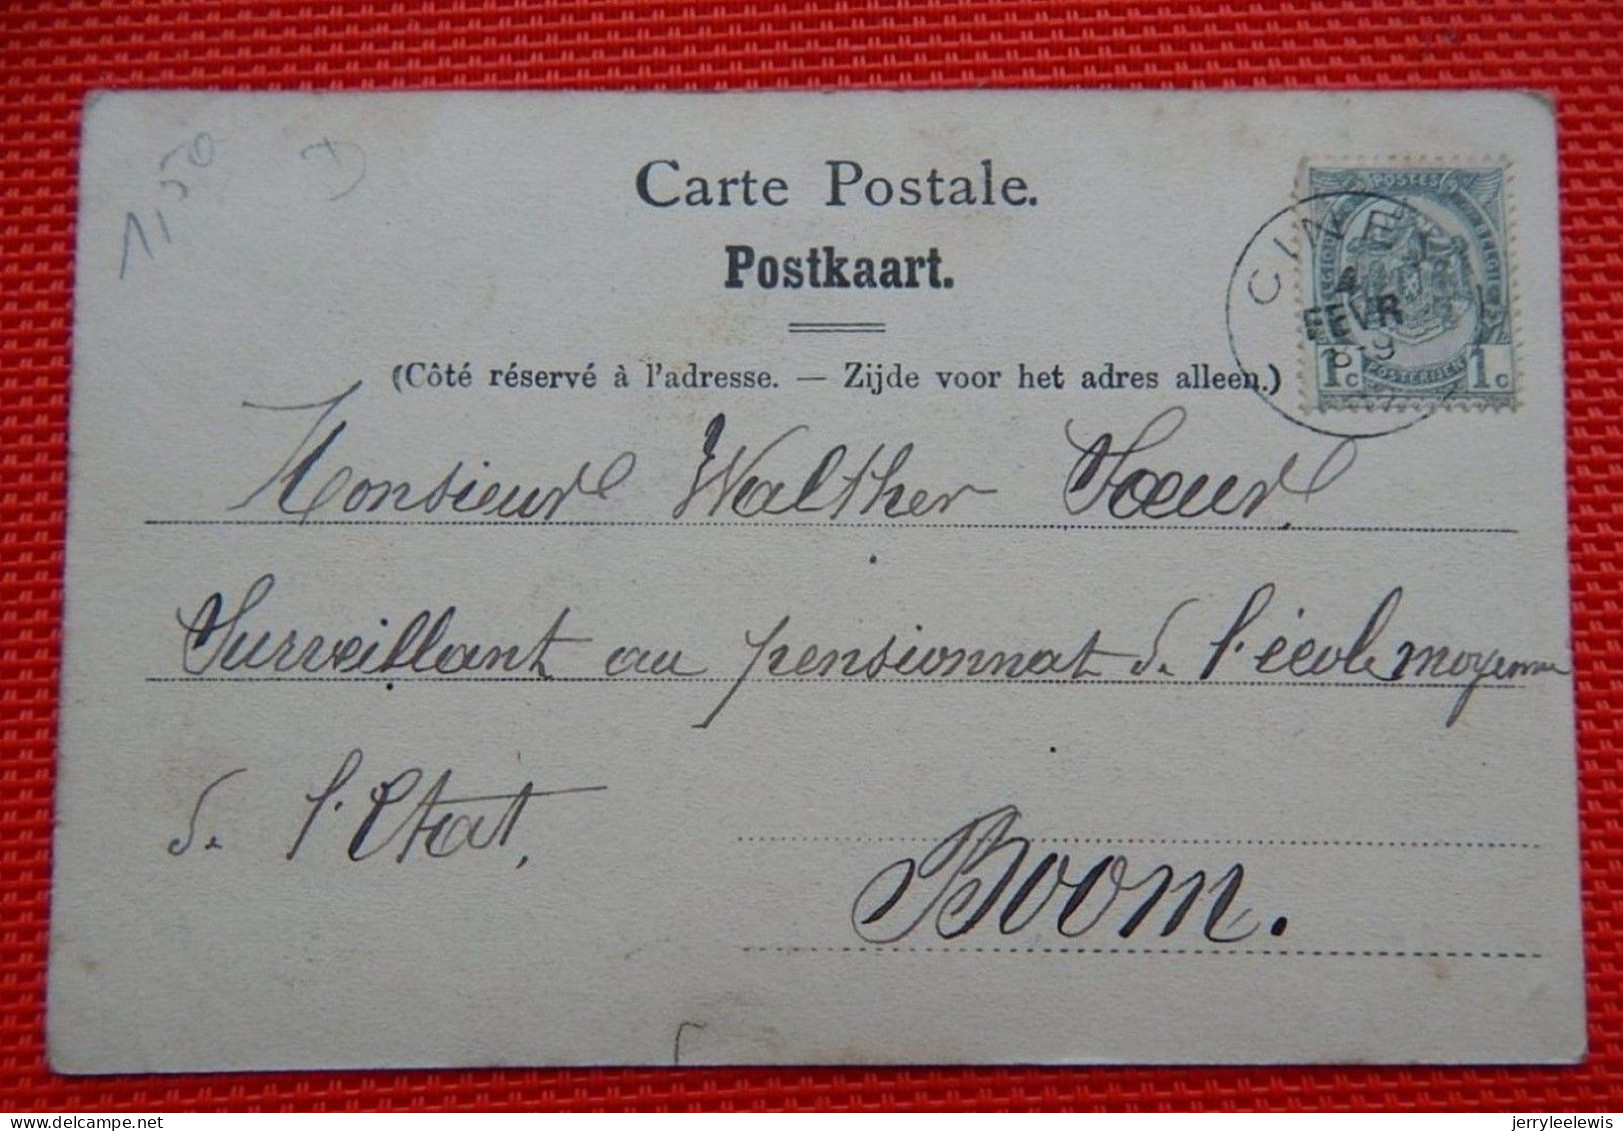 1,50
Carte Postale.
Postkaart.
(Côté réservé à l'adresse. — Zijde voor het adres alleen.)
POSTES
BELGIQUE
BELGIË
1c POSTERIJEN 1c
CINEY
4
FEVR
8-9
Monsieur Walther Soeur
Surveillant au pensionnat de l'école moyenne
de l'Etat,
Boom.
jerryleelewis